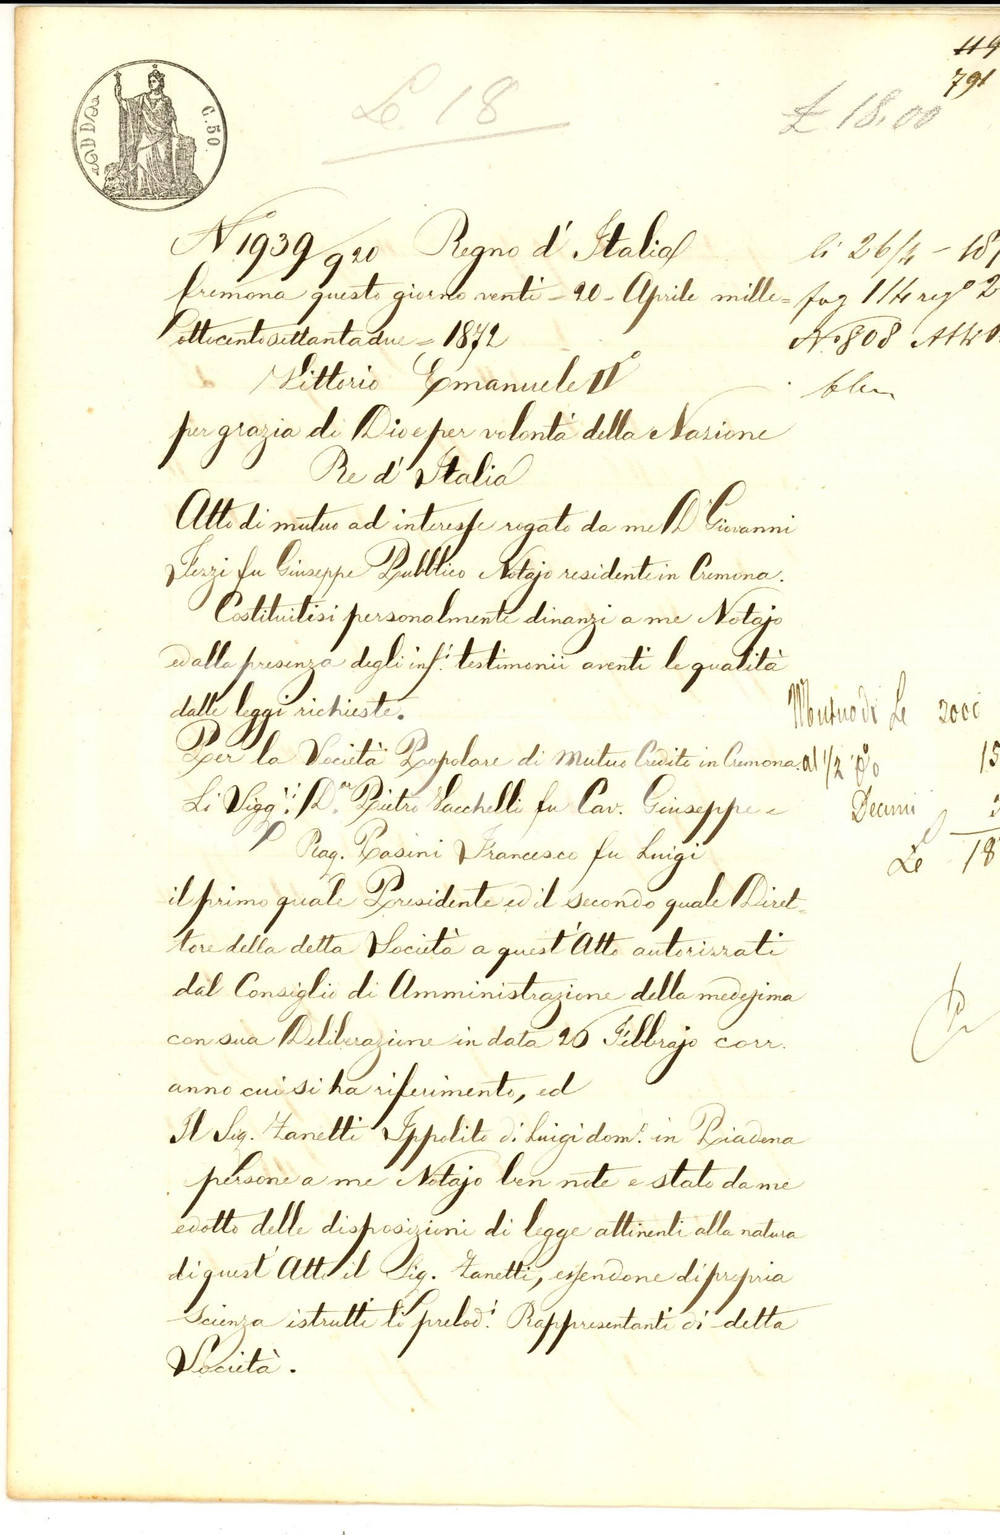 119
791
C. 50.
Le. 18
£ 18.00
N. 1939 920 Regno d' Italia
Cremona questo giorno venti = 20 = Aprile mille=
ottocentosettantadue = 1872
Vittorio Emanuele II°
per grazia di Dio e per volontà della Nazione
Re d' Italia
li 26/4 - 187
fog 114 reg° 2
N. 808 Atti
Atto di mutuo ad interesse rogato da me Dr. Giovanni
Tezzi fu Giuseppe Pubblico Notajo residente in Cremona.
Costituitisi personalmente dinanzi a me Notajo
ed alla presenza degli inf.i testimonii aventi le qualità
dalle leggi richieste.
Per la Società Popolare di Mutuo Credito in Cremona.
Li Sigg.i: Dr. Pietro Vacchelli fu Cav. Giuseppe =
Rag. Pasini Francesco fu Luigi
il primo quale Presidente ed il secondo quale Diret=
tore della detta Società a quest'Atto autorizzati
dal Consiglio di Amministrazione della medesima
con sua Deliberazione in data 26 Febbrajo corr.
anno cui si ha riferimento, ed
Il Sig. Zanetti Ippolito di Luigi dom.o in Piadena
persone a me Notajo ben note e stato da me
edotto delle disposizioni di legge attinenti alla natura
di quest' Atto il Sig. Zanetti, essendone di propria
scienza istrutti li prelod.i Rappresentanti di detta
Società.
Mutuo di Le 2000
al 1/2 %o 15
Decimi 3
Le 18